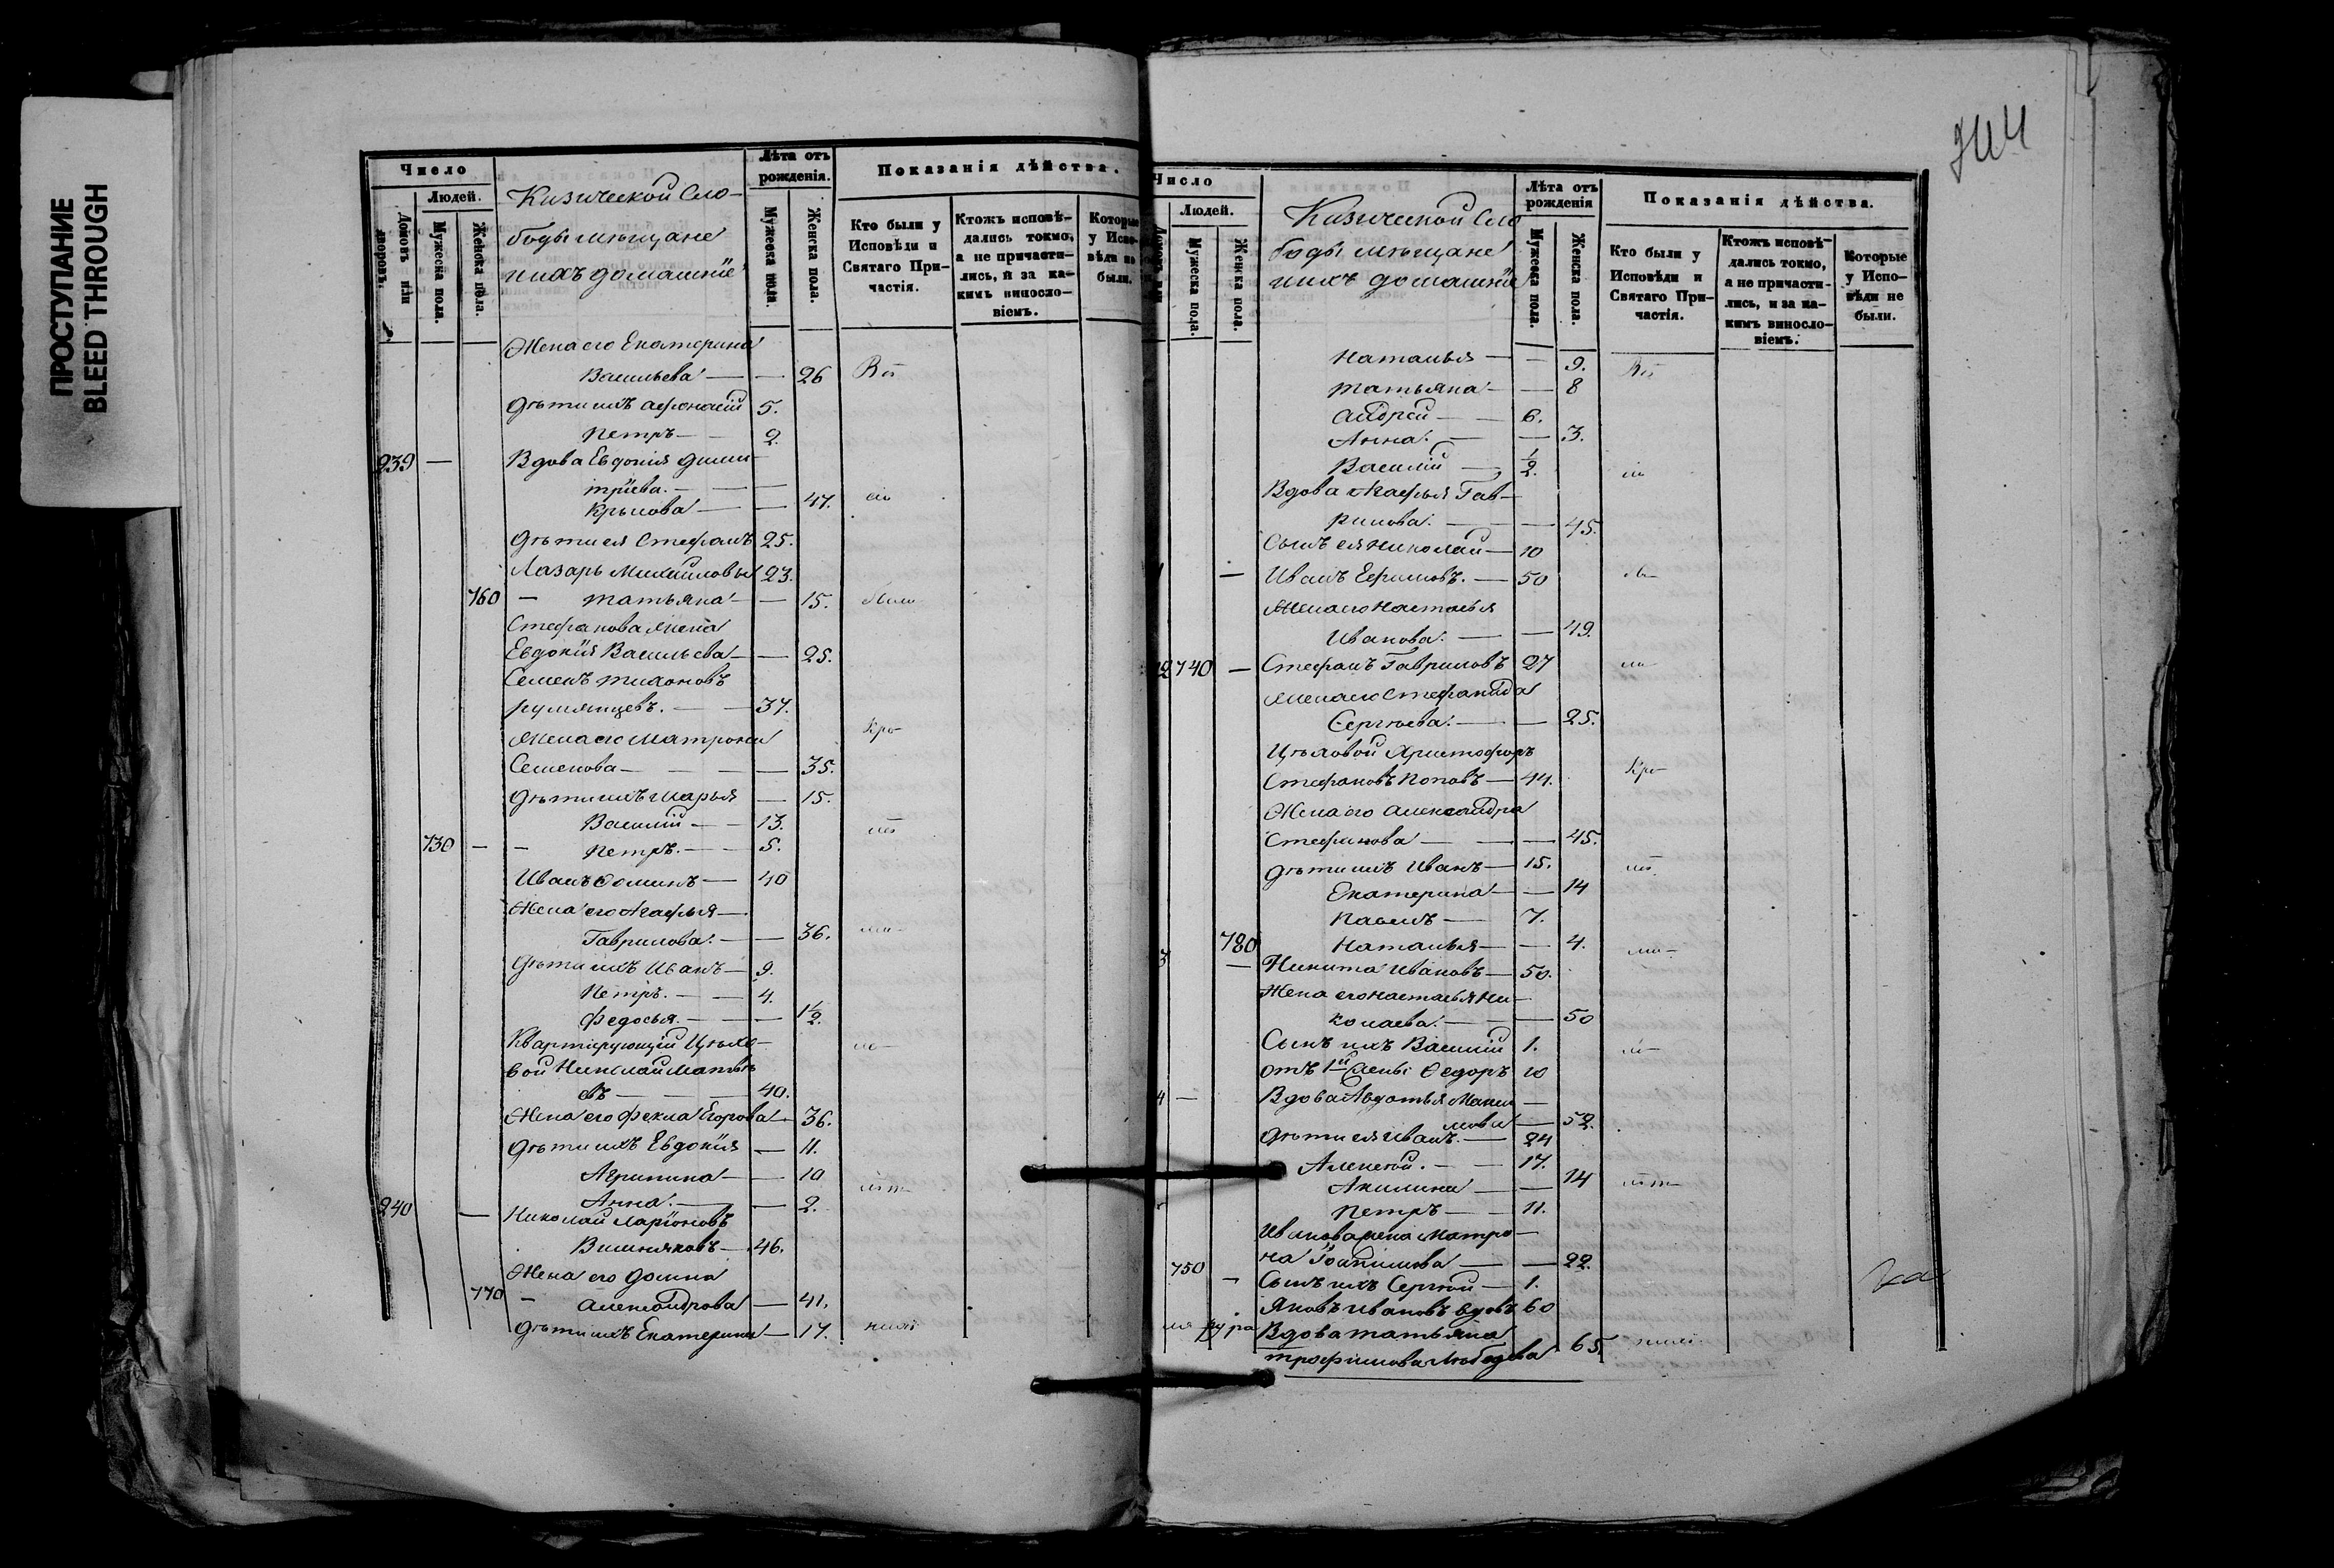 ПРОСТУПАНИЕ
BLEED THROUGH
Число
Людей.
Домовъ или дворовъ.
Мужеска пола.
Женска пола.
Кизической Сло-
боды мѣщане
и ихъ домашніе
Лѣта отъ рожденія.
Мужеска пола.
Женска пола.
Показанія дѣйства.
Кто были у Исповѣди и Святаго При-частія.
Ктожъ исповѣ-дались токмо, а не причасти-лись, и за ка-кимъ винесло-віемъ.
Которые у Испо-вѣди не были.
Жена его Екатерина
Васильева — — 26
Дѣти ихъ Афонасій 5.
Петръ — 2.
239 — Вдова Евдокія Дими-
тріева. —
Крылова — — 47.
Дѣти ея Стефанъ 25.
Лазарь Михайловы 23.
760 — Татьяна — — 15.
Стефанова жена
Евдокія Васильева — — 25.
Семенъ Тихоновъ
Румянцевъ. — 37.
Жена его Матрона
Семенова — — 35.
Дѣти ихъ Марья — 15.
Василій — 13.
730 — — Петръ. — 5.
Иванъ Фоминъ — 40
Жена его Агафья —
Гаврилова. — — 36.
Дѣти ихъ Иванъ — 9.
Петръ. — 4.
Федосья. — — 1 1/2.
Квартирующій Цѣхо-
вой Николай Матвѣ-
евъ — 40.
Жена его Фекла Егорова — 36.
Дѣти ихъ Евдокія — 11.
Агрипина — — 10
Анна. — — 2.
240 — Николай Ларіоновъ
Вишняковъ — 46.
Жена его Домна
770 — Александрова — 41.
Дѣти ихъ Екатерина — 17.
Число
Людей.
Мужеска пола.
Женска пола.
Кизической Сло
боды мѣщане
и ихъ домашніе
Лѣта отъ рожденія
Мужеска пола.
Женска пола.
Показанія дѣйства.
Кто были у Исповѣди и Святаго При-частія.
Ктожъ исповѣ-дались токмо, а не причасти-лись, и за ка-кимъ винесло-віемъ.
Которые у Испо-вѣди не были.
Наталья — — 9.
Татьяна — — 8
Андрей — 6.
Анна. — — 3.
Василій — 1/2.
Вдова Агафья Гав-
рилова. — — 45.
Сынъ ея Николай — 10
— Иванъ Ефимовъ. — 50
Жена его Настасья
Иванова. — — 49.
2 740 — Стефанъ Гавриловъ 27
Жена его Стефанида
Сергѣева. — — 25.
Цѣховой Христофоръ
Стефановъ Поповъ — 44.
Жена его Александра
Стефанова — — 45.
Дѣти ихъ Иванъ — 15.
Екатерина — — 14
Павелъ — 7.
780 Наталья — — 4.
3 — Никита Ивановъ — 50.
Жена его Настасья Ни-
колаева. — — 50
Сынъ ихъ Василій 1.
отъ 1й жены Ѳедоръ 10
4 — Вдова Авдотья Макси-
мова — 52.
Дѣти ея Иванъ. — 24
Алексѣй. — 17.
Акилина — — 14
Петръ — 11.
Иванова жена Матро-
на — — 22.
750 — Сынъ ихъ Сергѣй — 1.
Яковъ Ивановъ вдовъ 60
Вдова Татьяна
Трофимова Лебедева 65.